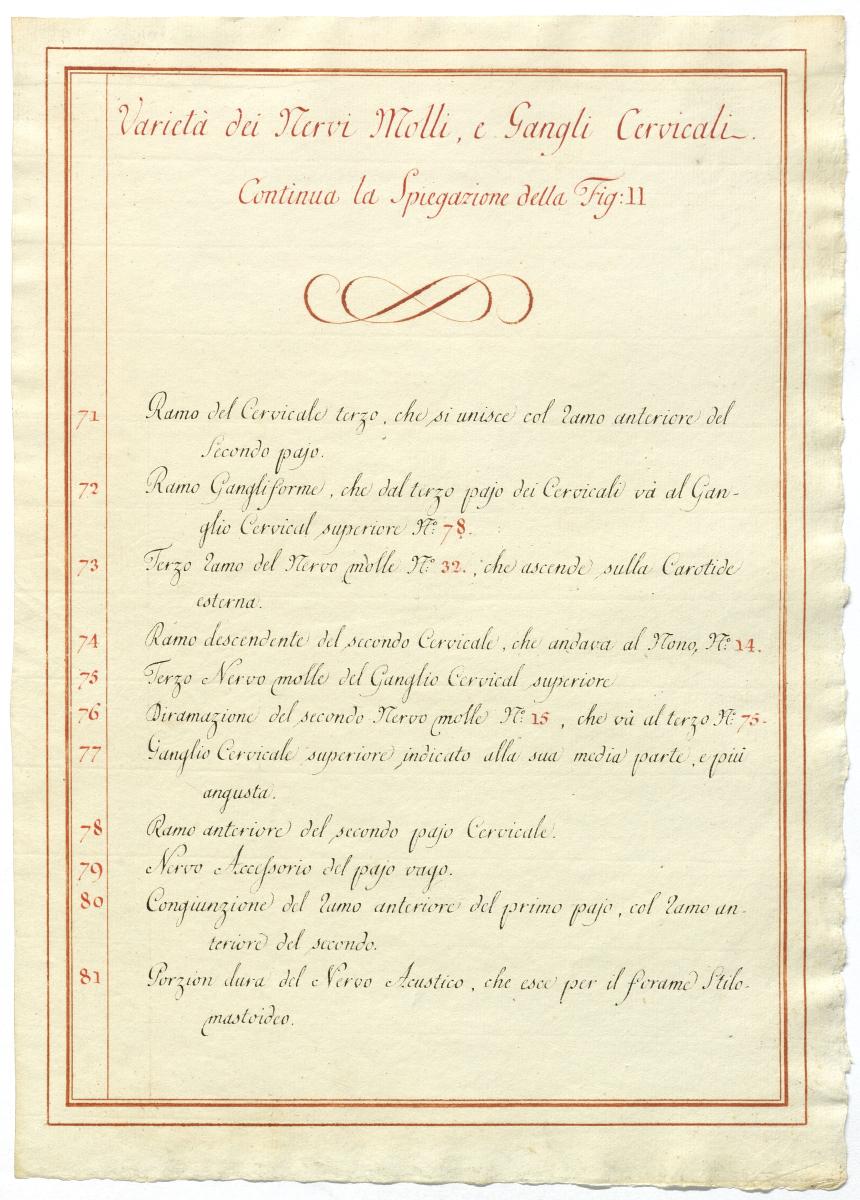 Varietà dei Nervi Molli, e Gangli Cervicali.
Continua la Spiegazione della Fig: 11
71 Ramo del Cervicale terzo, che si unisce col ramo anteriore del
Secondo pajo.
72 Ramo Gangliforme, che dal terzo pajo dei Cervicali và al Gan-
glio Cervical superiore N.º 78.
73 Terzo ramo del Nervo molle N.º 32., che ascende sulla Carotide
esterna.
74 Ramo descendente del secondo Cervicale, che andava al Nono, N.º 14.
75 Terzo Nervo molle del Ganglio Cervical superiore
76 Diramazione del secondo Nervo molle N.º 15, che và al terzo N.º 75.
77 Ganglio Cervicale superiore indicato alla sua media parte, e più
angusta.
78 Ramo anteriore del secondo pajo Cervicale.
79 Nervo Accessorio del pajo vago.
80 Congiunzione del ramo anteriore del primo pajo, col ramo an-
teriore del secondo.
81 Porzion dura del Nervo Acustico, che esce per il forame Stilo-
mastoideo.